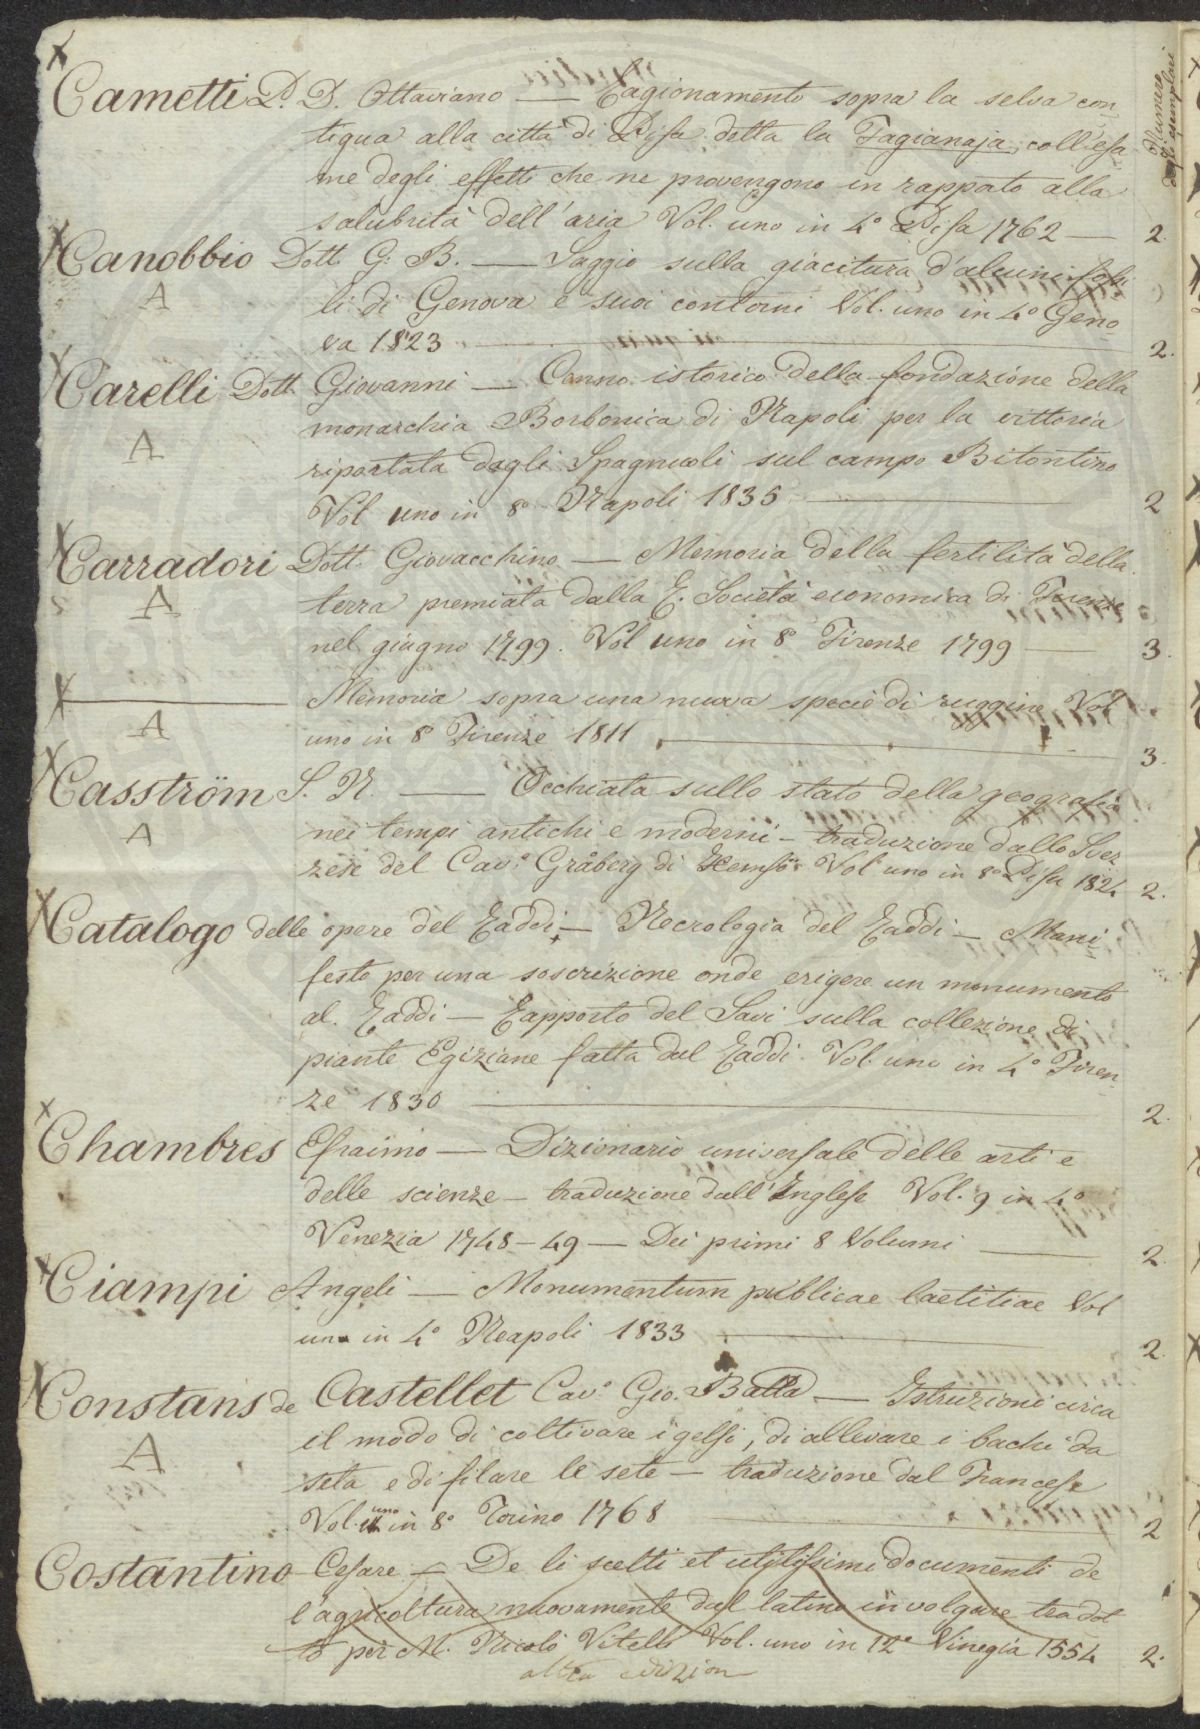 Numero
degli esemplari
Cametti P. D. Ottaviano — Ragionamento sopra la selva con
tigua alla città di Pisa detta la Fagianaja, coll'esa
me degli effetti che ne provengono in rappato alla
salubrità dell'aria Vol. uno in 4° Pisa 1762 — 2
Canobbio Dott. G. B. — Saggio sulla giacitura d'alcuni fossi
A
li di Genova e suoi contorni Vol. uno in 4° Geno
va 1823 — 2.
Carelli Dott. Giovanni — Cenno istorico della fondazione della
monarchia Borbonica di Napoli per la vittoria
A
riportata dagli Spagnuoli sul campo Bitontino
Vol uno in 8° Napoli 1835 — 2
Carradori Dott. Giovacchino — Memoria della fertilità della
A
terra premiata dalla R. Società economica di Firenze
nel giugno 1799. Vol uno in 8° Firenze 1799 — 3
— Memoria sopra una nuova specie di ruggine Vol
A
uno in 8° Firenze 1811 — 3.
Casström S. N. — Occhiata sullo stato della geografia
A
nei tempi antichi e moderni — traduzione dallo Svez
zese del Cav.e Gråberg di Hemsö Vol uno in 8° Pisa 1824 2.
Catalogo delle opere del Raddi — Necrologia del Raddi — Mani
festo per una soscrizione onde erigere un monumento
al Raddi — Rapporto del Savi sulla collezione di
piante Egiziane fatta dal Raddi. Vol. uno in 4° Firen
ze 1830 — 2.
Chambres Efraimo — Dizionario universale delle arti e
delle scienze — traduzione dall'Inglese Vol. 9 in 4°
Venezia 1748–49 — Dei primi 8 Volumi — 2
Ciampi Angeli — Monumentum publicae laetitiae Vol
uno in 4° Neapoli 1833 — 2
Constans de Castellet Cav.e Gio. Batta — Istruzioni circa
il modo di coltivare i gelsi, di allevare i bachi da
A
seta e di filare le sete — traduzione dal Francese
Vol. uno in 8° Torino 1768 — 2
Costantino Cesare — De li scelti et utilissimi documenti de
l'agricoltura nuovamente dal latino in volgare tradot
to per M. Nicolò Vitelli Vol. uno in 12° Vinegia 1554 2.
altra edizion